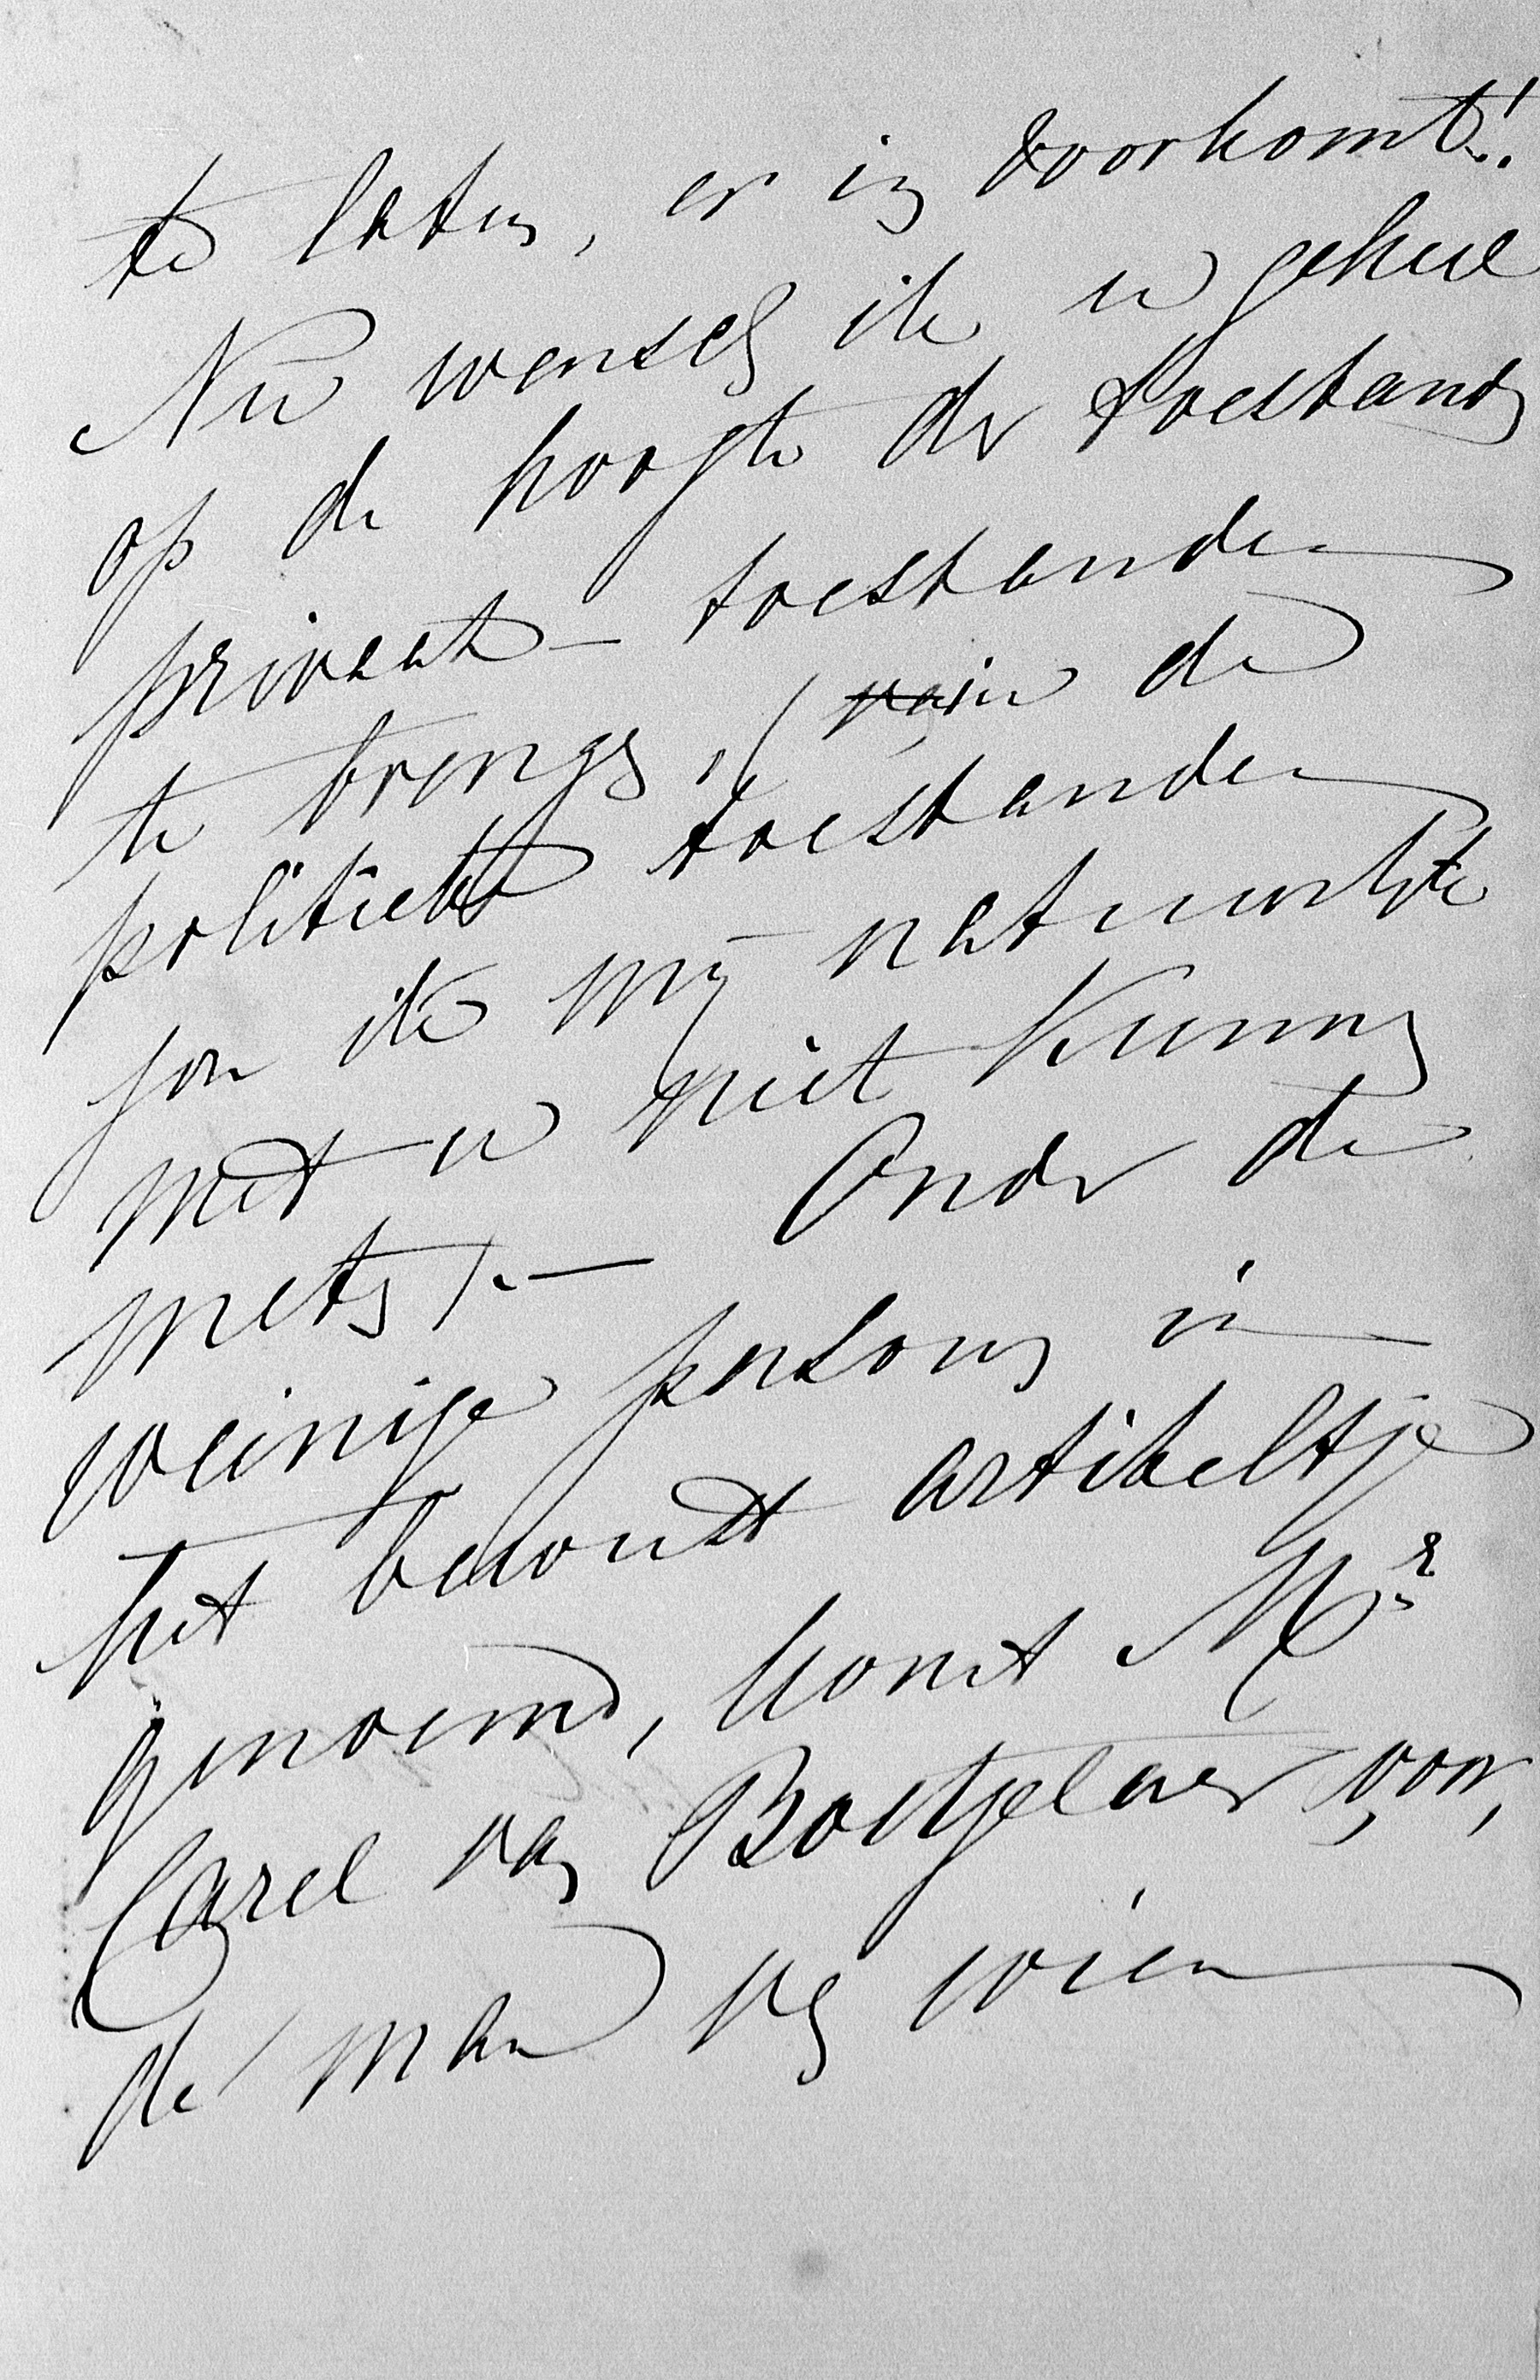 te laten, er in voorkomt!
Nu wensch ik u geheel
op de hoogte der toestand
privaat-toestanden
te brengen, (van de
politieke toestanden
zou ik mij natuurlijk
met u niet kunnen
meten).— Onder de
weinige personen in
het bewust artikeltje
genoemd, komt Mr
Carel van Boetzelaer, voor,
de man van wien